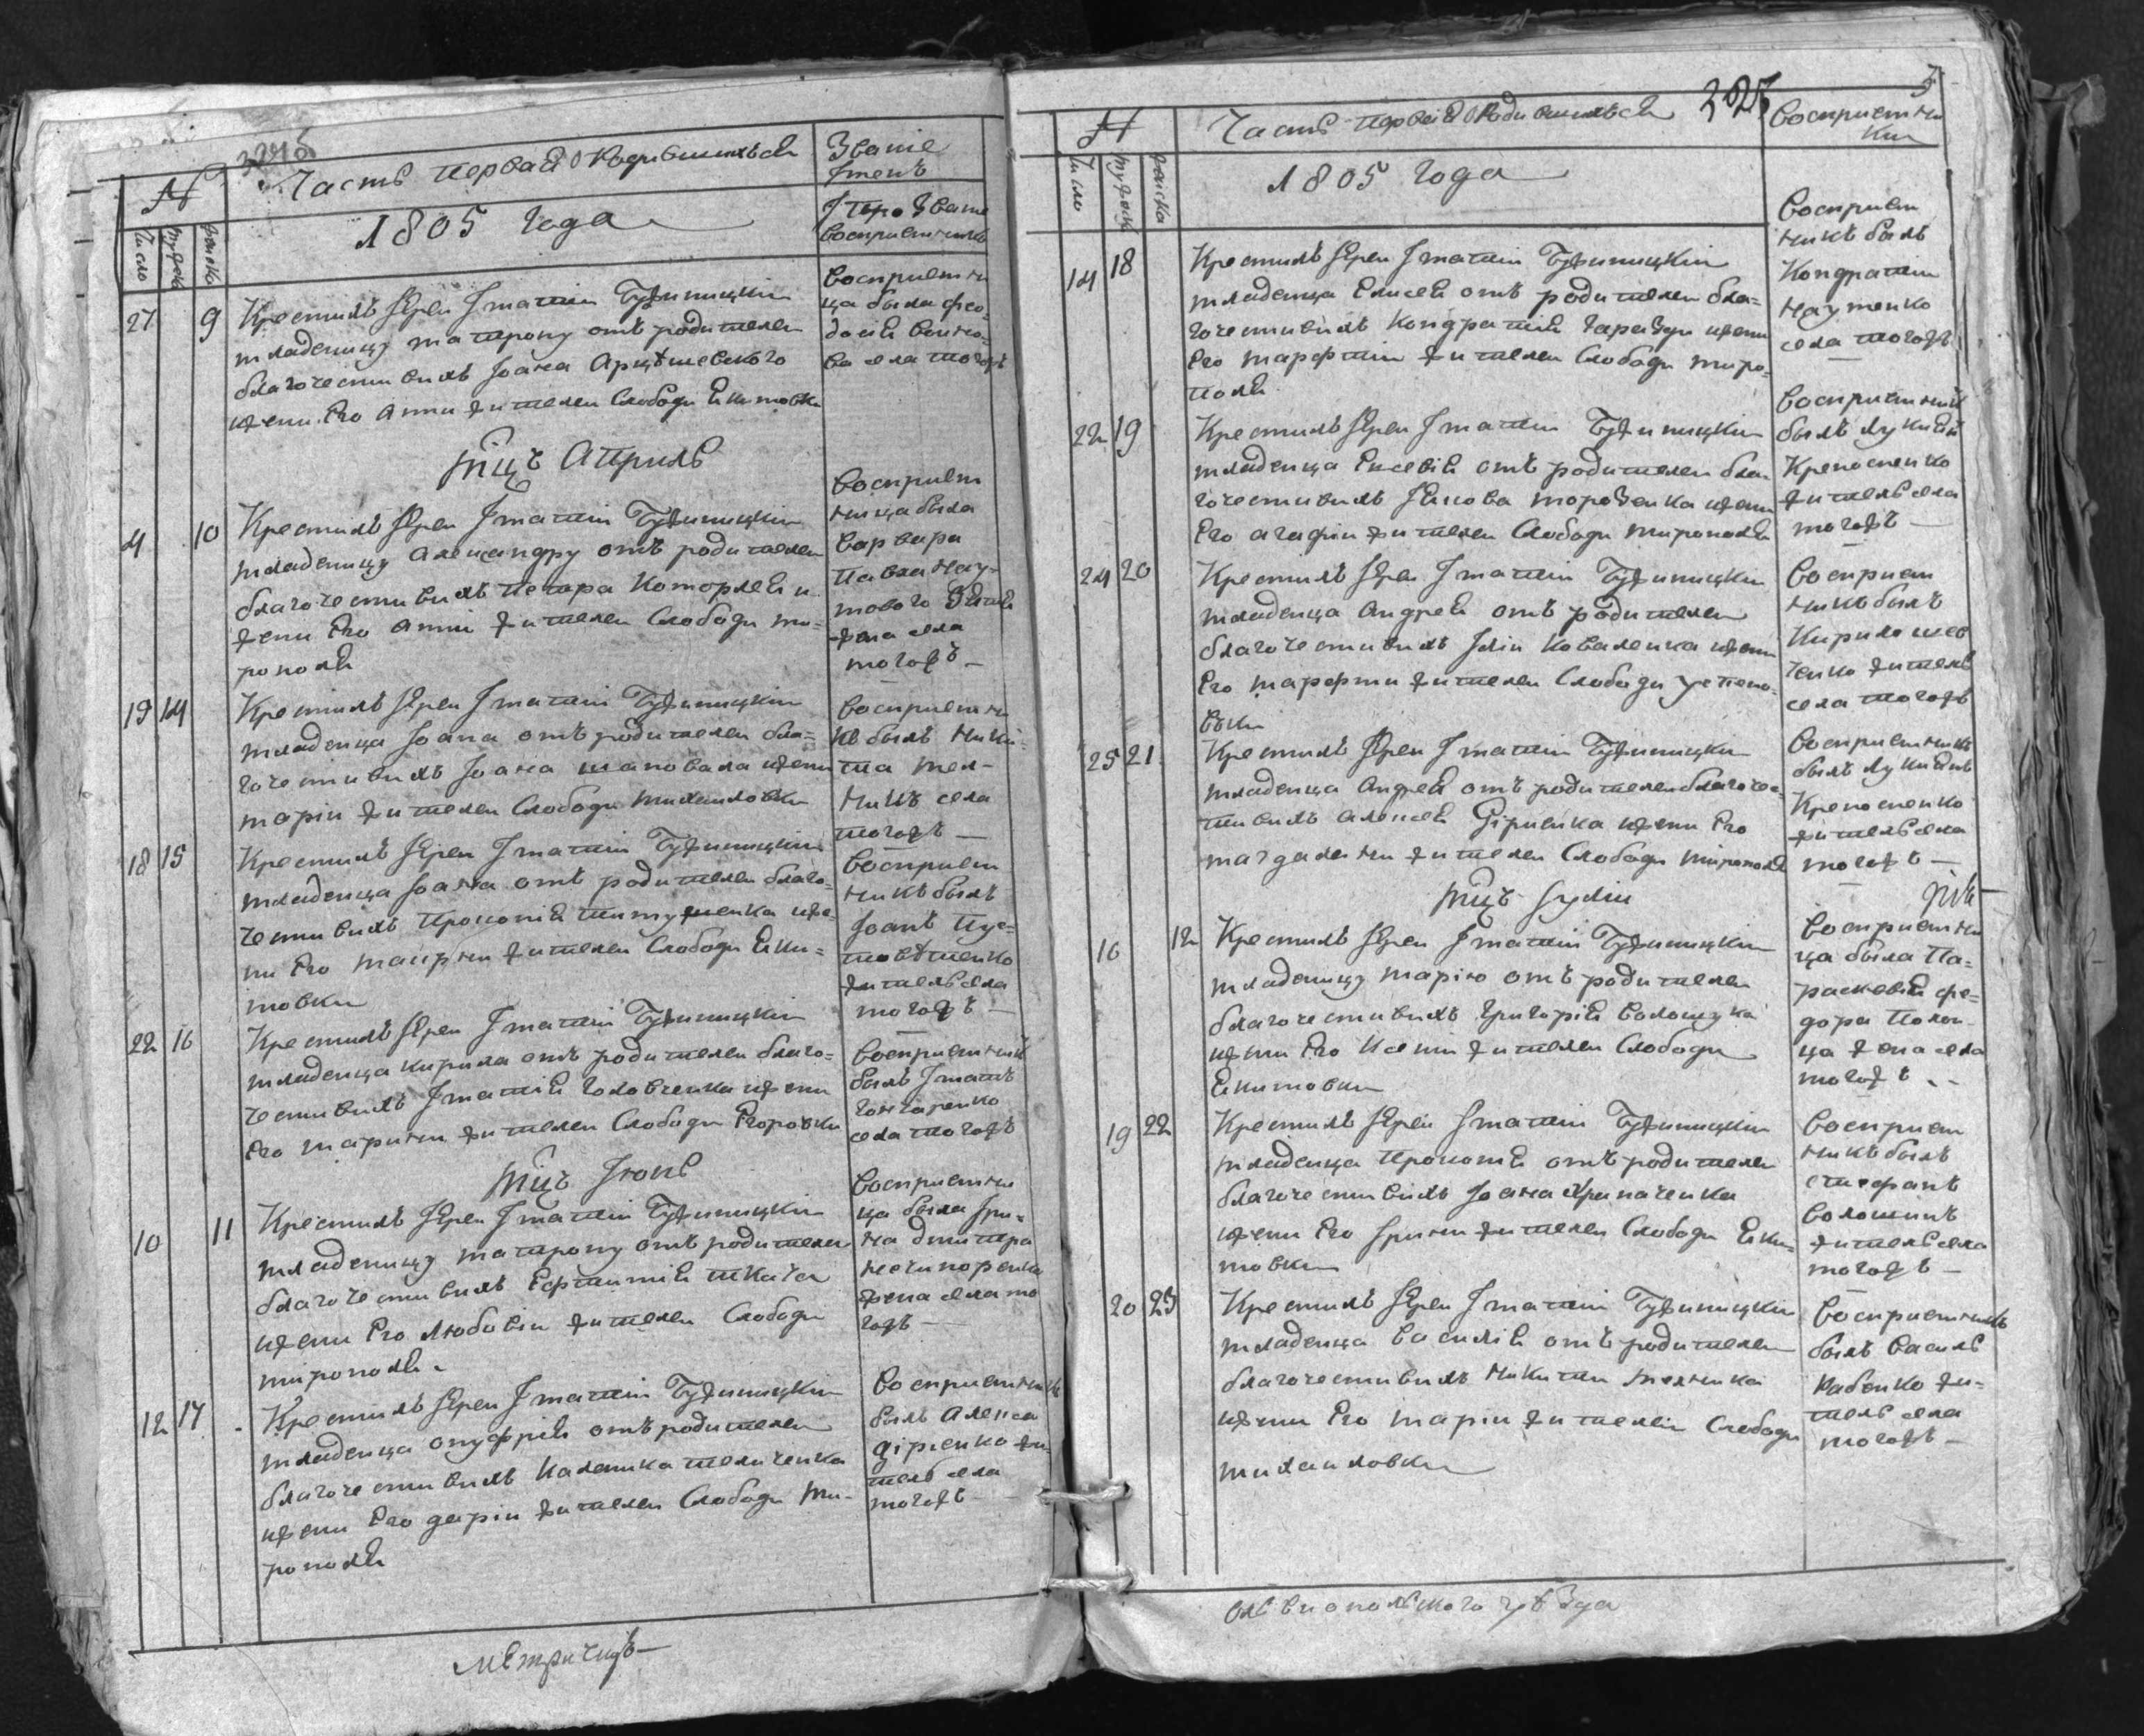 Часть первая о Родившихся
Званіе
Именъ
1805 года
И прозваніе
восприемниковъ
Число
мужеск
женска
27 9
Крестилъ Іерей Игнатій Бужиницкій
младеницу матрону отъ родителей
благочестивихъ Іоана Арцѣшевского
и жени его Анни жителей Слободи Екимовки
восприемни
ца была фео-
досія воино-
ва села тогожъ
мцъ Априль
4 10
Крестилъ Іерей Игнатій Бужиницкій
младеницу Александру отъ родителей
благочестивихъ Петра Которлея и
жени его Анни жителей Слободи ми-
рополя
восприем
ница была
варвара
Павла Нау-
мового
жена села
тогожъ
19 14
Крестилъ Іерей Игнатій Бужиницкій
младенца Іоана отъ родителей бла-
гочестивихъ Іоана шаповала и жени
маріи жителей Слободи михаиловки
восприемни
къ былъ Ники-
та мел-
никъ села
тогожъ
18 15
Крестилъ Іерей Игнатій Бужиницкій
младенца Іоана отъ родителей благо-
честивихъ Прокопія и же-
ни его маврни жителей Слободи Еки-
мовки
восприем
никъ былъ
Іоанъ Пус-
товѣтенко
житель села
тогожъ
22 16
Крестилъ Іерей Игнатій Бужиницкій
младенца кирила отъ родителей благо-
честивихъ Игнатія головченка и жени
его марини жителей Слободи Егоровки
восприемникъ
былъ Игнатъ
гончаренко
села тогожъ
мцъ Іюнь
10 11
Крестилъ Іерей Игнатій Бужиницкій
младеницу матрону отъ родителей
благочестивихъ Ефтимія ткача
и жени его любовіи жителей Слободи
мирополя
восприемни
ца была Іри-
на дмитра
нечипоренка
жена села то
гожъ
12 17
Крестилъ Іерей Игнатій Бужиницкій
младенца онуфрія отъ родителей
благочестивихъ каленика теличенка
и жени его даріи жителей Слободи ми-
рополя
восприемникъ
былъ Алекса
діріенко жи-
тель села
тогожъ
метричнъ
Часть первая о Родившихся
325
восприемни
ки
1805 года
Число
мужеск
женска
14 18
Крестилъ Іерей Игнатій Бужиницкій
младенца Елисея отъ родителей бла-
гочестивихъ кондратія гаражди и жени
его марфти жителей Слободи миро-
поля
восприем
никъ былъ
Кондратій
Науменко
села тогожъ
22 19
Крестилъ Іерей Игнатій Бужиницкій
младенца Евсевія отъ родителей бла-
гочестивихъ Іякова морозенка и жени
его агафіи жителей Слободи мирополя
восприемникъ
былъ лукиянъ
Крепостенко
житель села
тогожъ
24 20
Крестилъ Іерей Игнатій Бужиницкій
младенца Андрея отъ родителей
благочестивихъ Іліи коваленка и жени
его марфти жителей Слободи успено-
вки
восприем
никъ былъ
Кирило шев
ченко житель
села тогожъ
25 21
Крестилъ Іерей Игнатій Бужиницкій
младенца Андрея отъ родителей благочес-
тивихъ алексея діріенка и жени его
магдалени жителей Слободи мирополя
восприемникъ
былъ лукиянъ
Крепостенко
житель села
тогожъ
мцъ Іулій
16 12
Крестилъ Іерей Игнатій Бужиницкій
младеницу марію отъ родителей
благочестивихъ григорія волощука
и жени его Ксеніи жителей Слободи
Екимовки
восприемни
ца была Па-
раскевія фе-
дора Полон-
ца жена села
тогожъ
19 22
Крестилъ Іерей Игнатій Бужиницкій
младенца Прокопія отъ родителей
благочестивихъ Іоана Храпаченка
и жени его Ірини жителей Слободи Еки-
мовки
восприем
никъ былъ
стефанъ
волошинъ
житель села
тогожъ
20 23
Крестилъ Іерей Игнатій Бужиницкій
младенца василія отъ родителей
благочестивихъ никити мелника
и жени его маріи жителей Слободи
михаиловки
восприемникъ
былъ василь
Рабенко жи-
тель села
тогожъ
Ольвиопольского уѣзда